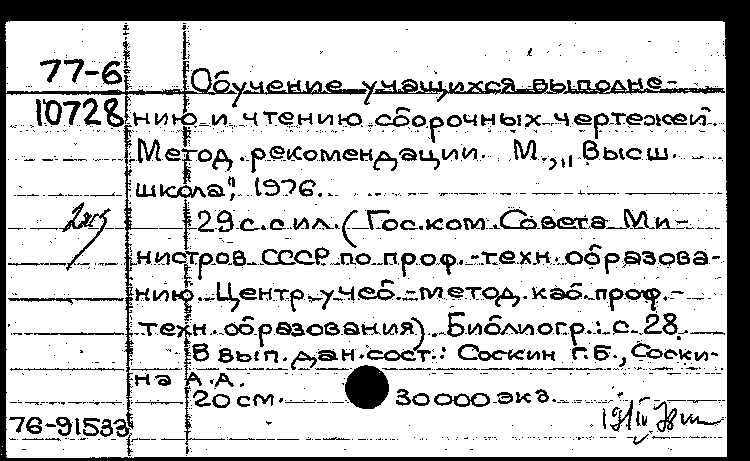 77-6
Обучение учащихся выполне-
10728 нию и чтению сборочных чертежей.
Метод. рекомендации. М., „Высш.
школа", 1976.
2 экз
29 с. с ил. (Гос. ком. Совета Ми-
нистров СССР по проф.-техн. образова-
нию. Центр. учеб.-метод. каб. проф.-
техн. образования). Библиогр.: с. 28.
В вып. дан. сост.: Соскин Г.Б., Соски-
на А.А.
20 см. 30000 экз.
76-91533